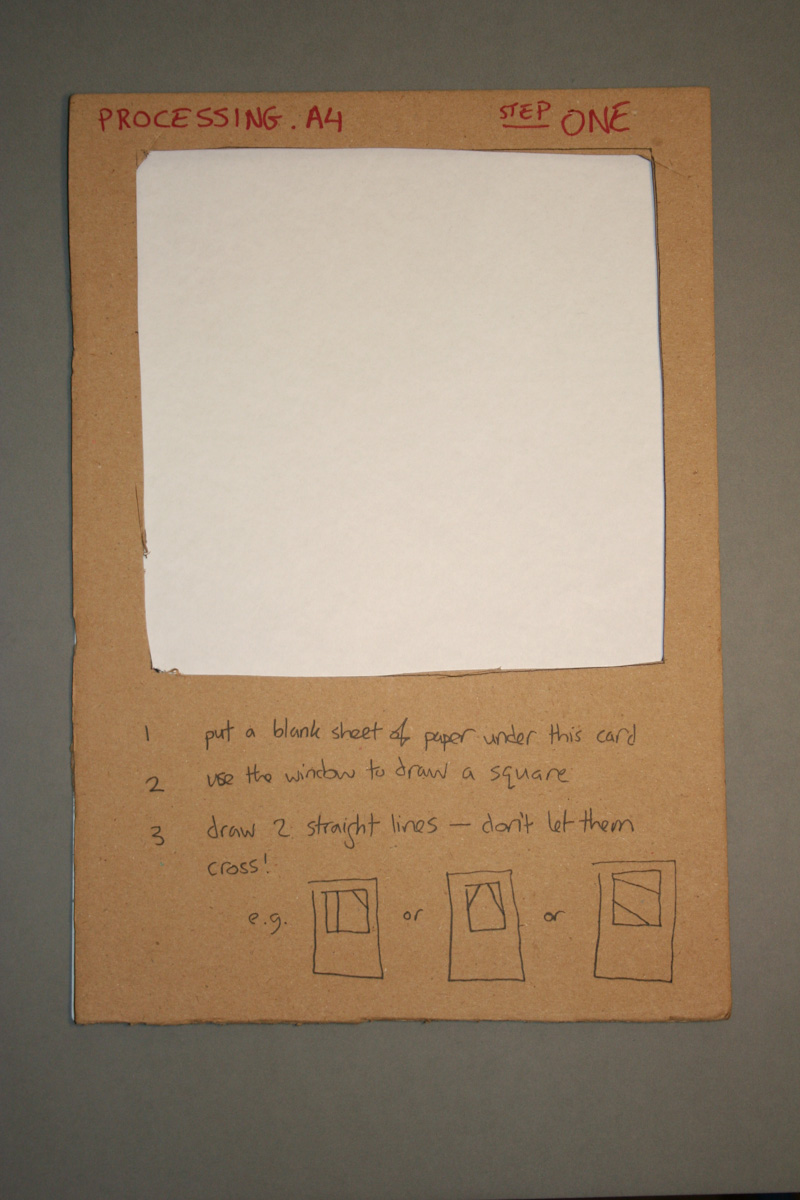 PROCESSING. A4 STEP ONE
1 put a blank sheet of paper under this card
2 use the window to draw a square
3 draw 2 straight lines — don't let them
cross!
e.g. or or